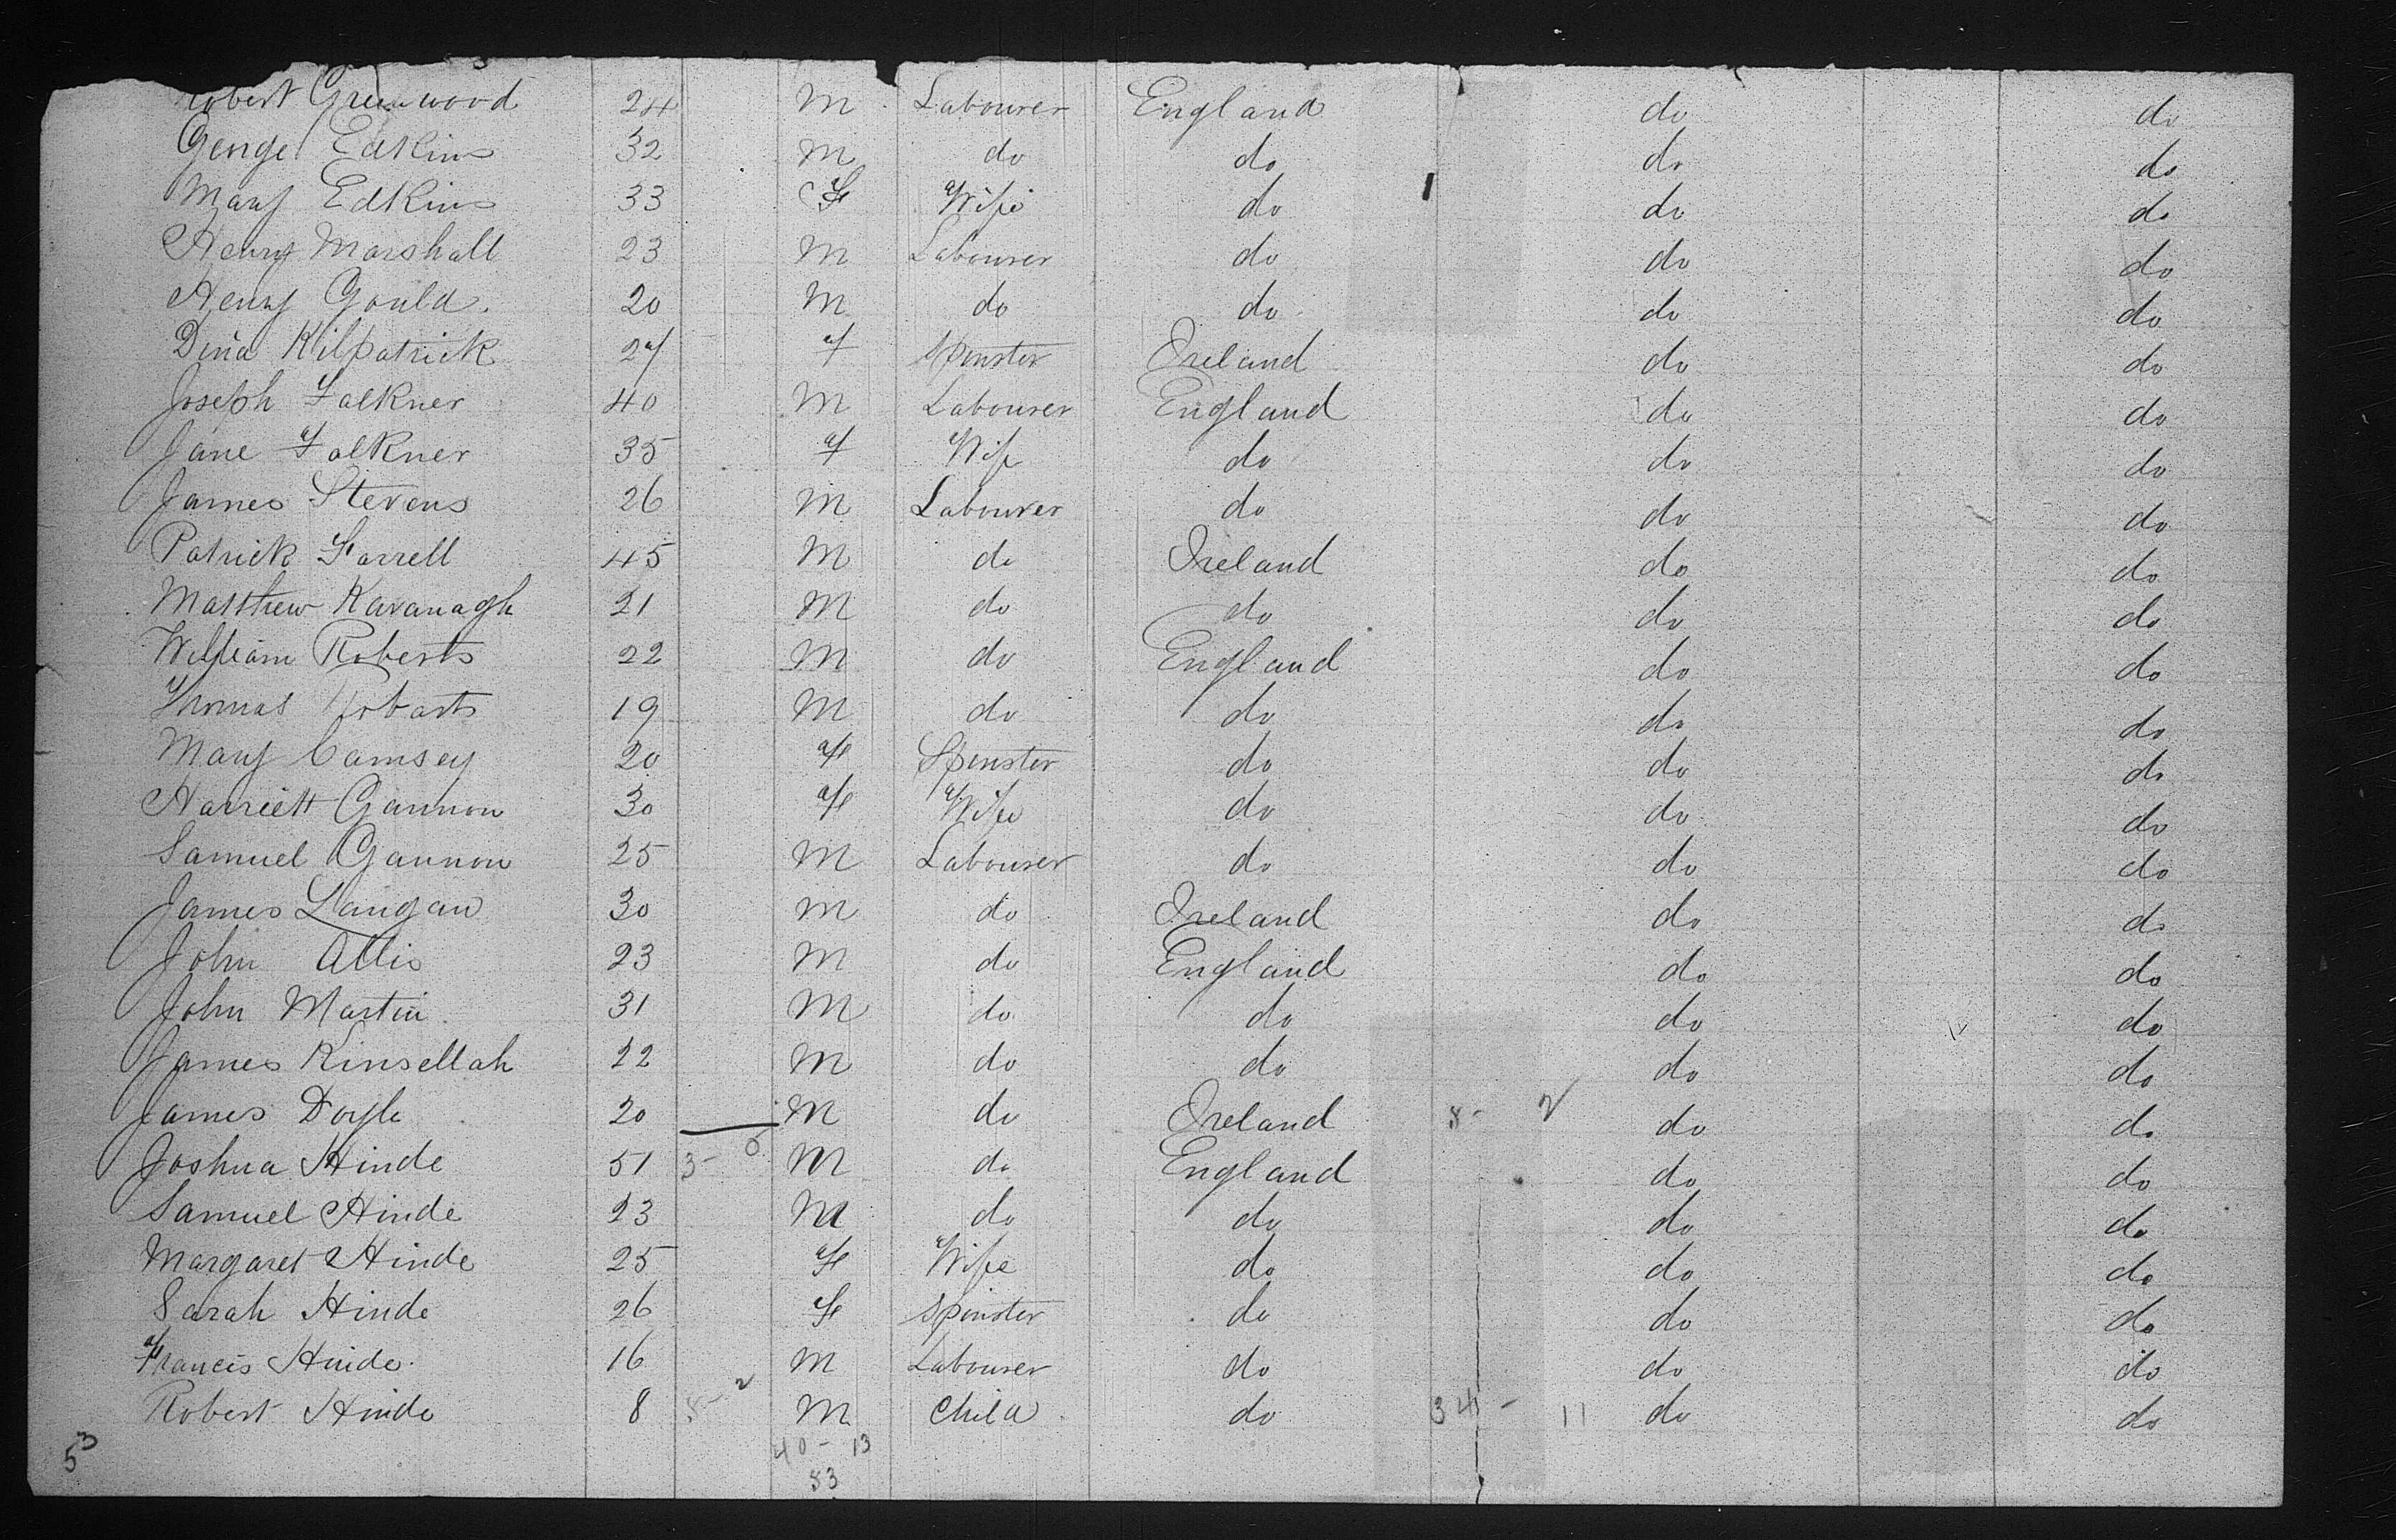 Robert Greenwood 24 M Labourer England do do
George Edkins 32 M do do do do
Mary Edkins 33 F Wife do do do
Henry Marshall 23 M Labourer do do do
Henry Gould. 20 M do do do do
Dina Kilpatrick 27 F Spinster Ireland do do
Joseph Falkner 40 M Labourer England do do
Jane Falkner 35 F Wife do do do
James Stevens 26 M Labourer do do do
Patrick Farrell 45 M do Ireland do do
Matthew Kavanagh 21 M do do do do
William Roberts 22 M do England do do
Thomas 19 M do do do do
Mary Camsey 20 F Spinster do do do
Harriett Gannon 30 F Wife do do do
Samuel Gannon 25 M Labourer do do do
James Langan 30 M do Ireland do do
John Allis 23 M do England do do
John Martin 31 M do do do do
James Kinsellah 22 M do do do do
James Doyle 20 M do Ireland 8 - 2 do do
Joshua Hinde 51 3 - 0 M do England do do
Samuel Hinde 23 M do do do do
Margaret Hinde 25 F Wife do do do
Sarah Hinde 26 F Spinster do do do
Francis Hinde. 16 M Labourer do do do
Robert Hinde 8 5 - 2 M Child do 34 - 11 do do
53 40 - 13
53